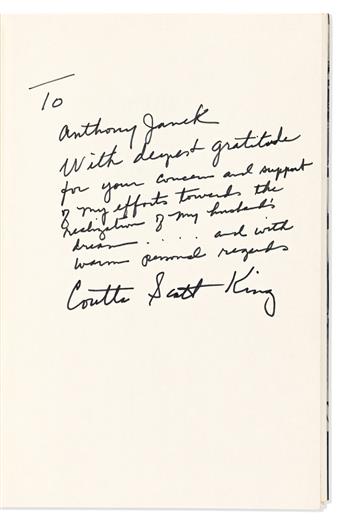 To
Anthony Janek
With deepest gratitude
for your concern and support
of my efforts towards the
realization of my husband's
dream ..... and with
warm personal regards
Coretta Scott King